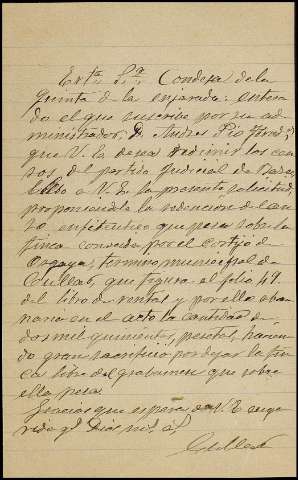 Exma Sra Condesa de la
Quinta de la enjarada: entera-
do el que suscribe por su ad-
ministrador, D. Andres Pio
que V. E. desea redimir los cen-
sos del partido judicial de
a V. E. la presente solicitud,
proponiendole la redencion del cen-
so enfiteutico que pesa sobre la
finca conocida por el Cortijo de
termino municipal de
que figura al folio 49
del libro de rentas y por ello abo-
naria en el acto la cantidad de
dos mil quinientas pesetas, hacien-
do gran sacrificio por dejar la fin-
ca libre del grabamen que sobre
ella pesa.
Gracias que espera de V. E. cuya